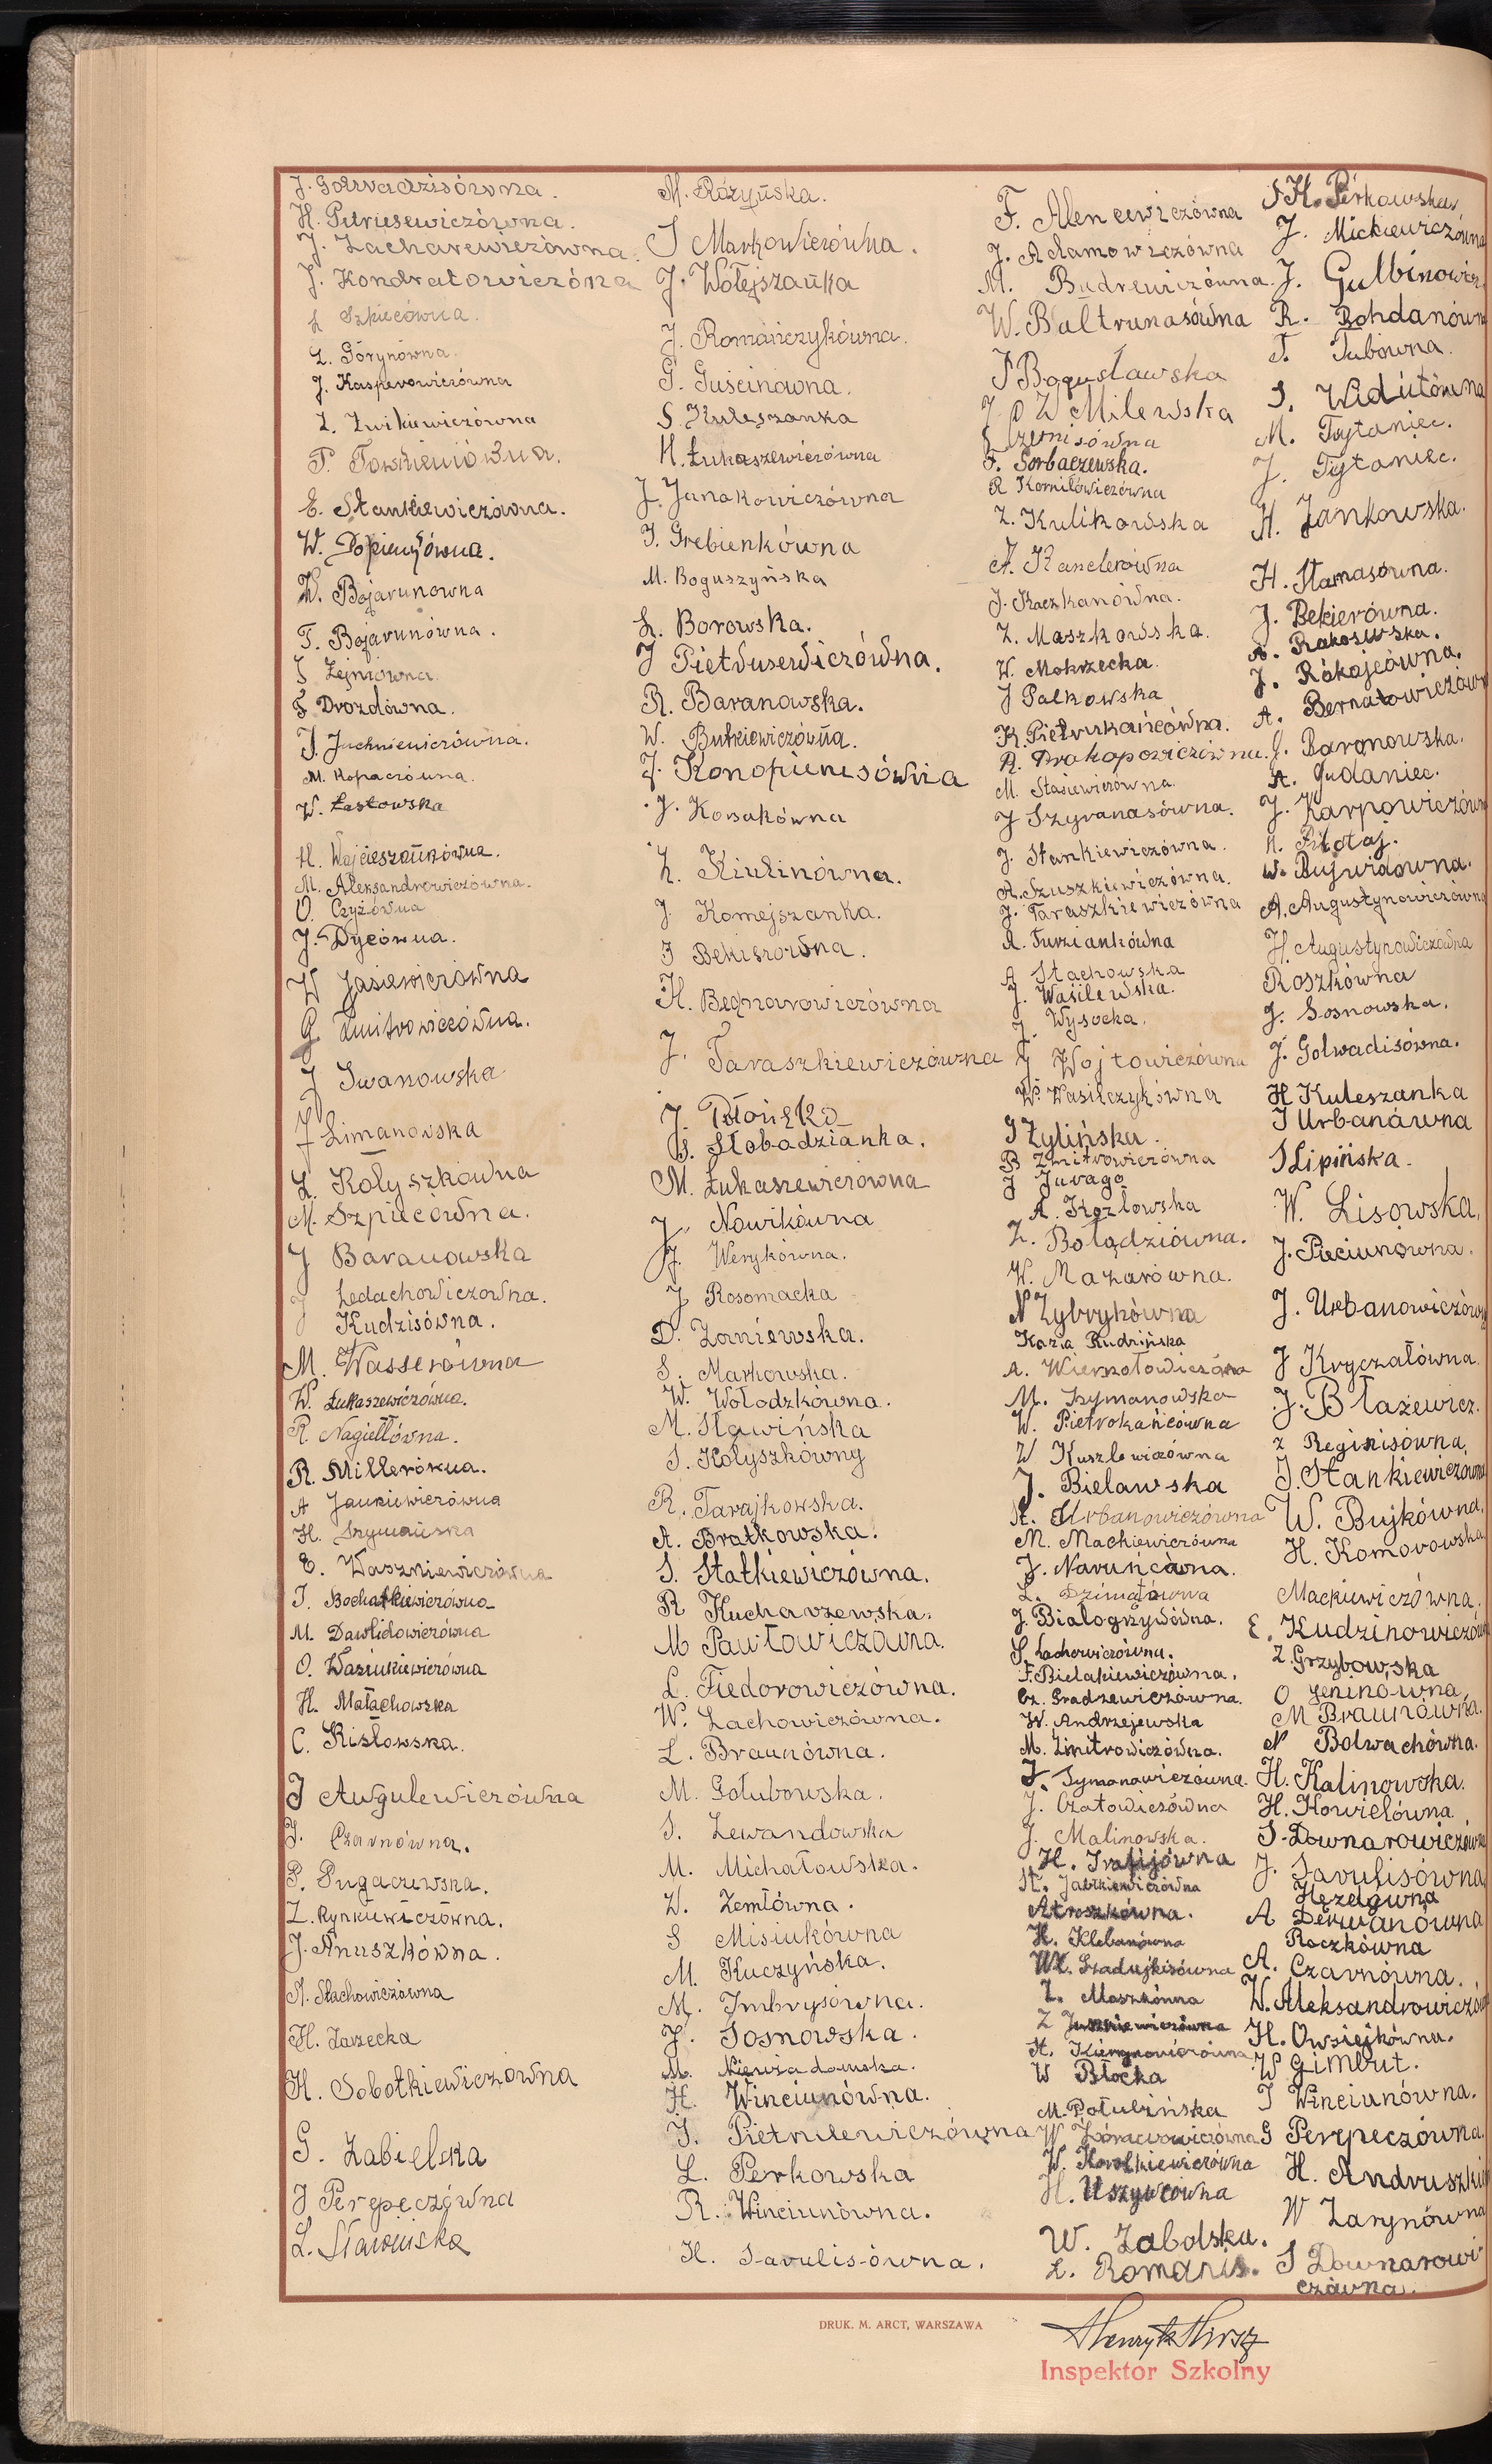 J. Golwadzisówna.
H. Pietrusewiczówna.
J. Zacharewiczówna.
J. Kondratowiczóna
L Szkiecówna.
L. Górynówna.
J. Kasperowiczówna
Z. Żwikiewiczówna
E. Stankiewiczówna.
W. Bojarunowna
T. Bojarunówna.
S. Drozdówna.
J. Juchniewiczówna.
M. Kopaczówna.
W. Łastowska
H. Wojcieszańkówna.
M. Aleksandrowiczówna.
O. Czyżówna
J. Dycówna.
W Jasiewiczówna
G Żmitrowiczówna.
J Iwanowska
J Limanowska
L. Kołyszkówna
M. Szpiecówna.
J Baranowska
J Ledachowiczowna.
Kudzisówna.
M. Wasserówna
W. Łukaszewiczówna.
R. Nagiełłówna.
R. Millerówna.
A Jankiewiczówna
H. Szymańska
E. Waszkiewiczówna
J. Bochatkiewiczówna
M. Dawlidowiczówna
O. Waziukiewiczówna
H. Małachowska
C. Kisłowska.
J Awgulewiczówna
J. Czarnówna.
P. Pugaczewska.
Z. Rynkiewiczówna.
J. Anuszkówna.
A. Stachowiczówna
H. Zarzecka
H. Sobotkiewiczówna
G. Zabielska
J Perepeczówna
L. Sławińska
M. Rożyńska.
S Markowiczówna.
J. Wołejszańka
J. Romańczykówna.
G. Guścinowna.
S. Kuleszanka
H. Łukaszewiczówna
J. Junakowiczówna
J. Grebienkówna
M. Boguszyńska
L. Borowska.
J Pietrusewiczówna.
R. Baranowska.
W. Butkiewiczówna.
J. Konopieniesówna
J. Kosakówna
Z. Kiulinówna.
J. Komejszanka.
J Bekiszówna.
H. Bednarowiczówna
J. Taraszkiewiczówna
J. Płońska
B. Słobodzianka.
M. Łukaszewiczówna
J. Nowikówna
J. Werykówna.
J Rosomacka
D. Zaniewska.
S. Markowska.
W. Wołodzkówna.
M. Sławińska
S. Kołyszkówny
R. Tarajkowska.
A. Bratkowska.
S. Statkiewiczówna.
R Kucharzewska.
M Pawłowiczówna.
L. Fiedorowiczówna.
W. Lachowiczówna.
L. Braunówna.
M. Gołubowska.
S. Lewandowska
M. Michałowska.
W. Zemłówna.
S Misiukówna
M. Kuczyńska.
M. Imbrysówna.
J. Sosnowska.
M. Niewiadomska.
H. Winciunówna.
J. Pietrulewiczówna
L. Perkowska
R. Winciunówna.
H. Savulisówna.
F. Alencewiczówna
J. Adamowiczówna
M. Budrewiczówna.
W. Bałtrunasówna
J Bogusławska
W Milewska
F. Gorbaczewska.
R Kornilówiczówna
Z. Kulikowska
A. Kanclerówna
J. Kaczkanówna.
Z. Maszkowska.
W. Mokrzecka.
J Palkowska
K. Pietrukańcówna.
R. Prokopowiczówna.
M. Stasiewiczówna.
J Szyranasówna.
J. Stankiewiczówna.
A. Szuszkiewiczówna.
J. Taraszkiewiczówna
A. Turziankówna
A Stachowska
J. Wasilewska.
J. Wysocka.
J Wojtowiczówna
W. Wasilczykówna
J Żylińska.
B Żmitrowiczówna
J Jurago
A. Kozłowska
Z. Bołądziówna.
W. Mazarówna.
N Zybrykówna
Kazia Rudzińska
A. Wierszołowiczówna
M. Szymanowska
W. Pietrokańcówna
W Kuszlewiczówna
J. Bielawska
A. Urbanowiczówna
M. Mackiewiczówna
J. Naruńcówna.
L. Dzimatówna
J. Białogrzywówna.
S. Lachowiczówna.
F. Bielakiewiczówna.
Cz. Gradzewiczówna.
W. Andrzejewska
M. Żmitrowiczówna.
J. Symonowiczówna.
J. Czatowiczówna
J. Malinowska.
H. Klebanówna
Wł. Szadujkisówna
Z. Moszkówna
Z Juszkiewiczówna
W Błocka
M. Połubińska
W. Korolkiewiczówna
H. Uszywcówna
W. Zabolska.
L. Romanis.
H. Perkowska
J. Mickiewiczówna
J. Gulbinowicz
R. Bohdanówna
T. Tubówna.
S. Widutówna
M. Trytaniec.
J. Tytaniec.
H. Jankowska.
H. Stamasówna.
J. Bekierówna.
A. Rakowska.
J. Rókojcówna.
A. Bernatowiczówn
J. Baronowska.
A. Gudaniec.
J. Karpowiczówn
A. Piłotaj.
W. Bujwidówna.
A. Augustynowiczówna
H. Augustynowiczówna
Roszkówna
J. Sosnowska.
J. Golwadisówna.
H Kuleszanka
J Urbanówna
J Lipińska.
W. Lisowska,
J. Pieciunówna.
J. Urbanowiczówn
J Kryczałówna.
J. Błażewicz.
Z Reginisówna,
J. Stankiewiczówna
W. Bujkówna,
H. Komorowska
Mackiewiczówna.
E. Kudzinowiczówn
Z. Grzybowska
O Jeninówna,
M Braunówna.
N Bolwachówna.
H. Kalinowska.
H. Kowielówna
S. Downarowiczówna
J. Savulisówna
Hezelówna
A Derwanówna
Roczkówna
A. Czarnówna.
W. Aleksandrowiczów
H. Owsiejkówna.
W Gimbut.
J Winciunówna.
G Perepeczówna.
H. Andruszki
W Zarynówna
S Downarowi-
czówna.
DRUK. M. ARCT, WARSZAWA
Inspektor Szkolny